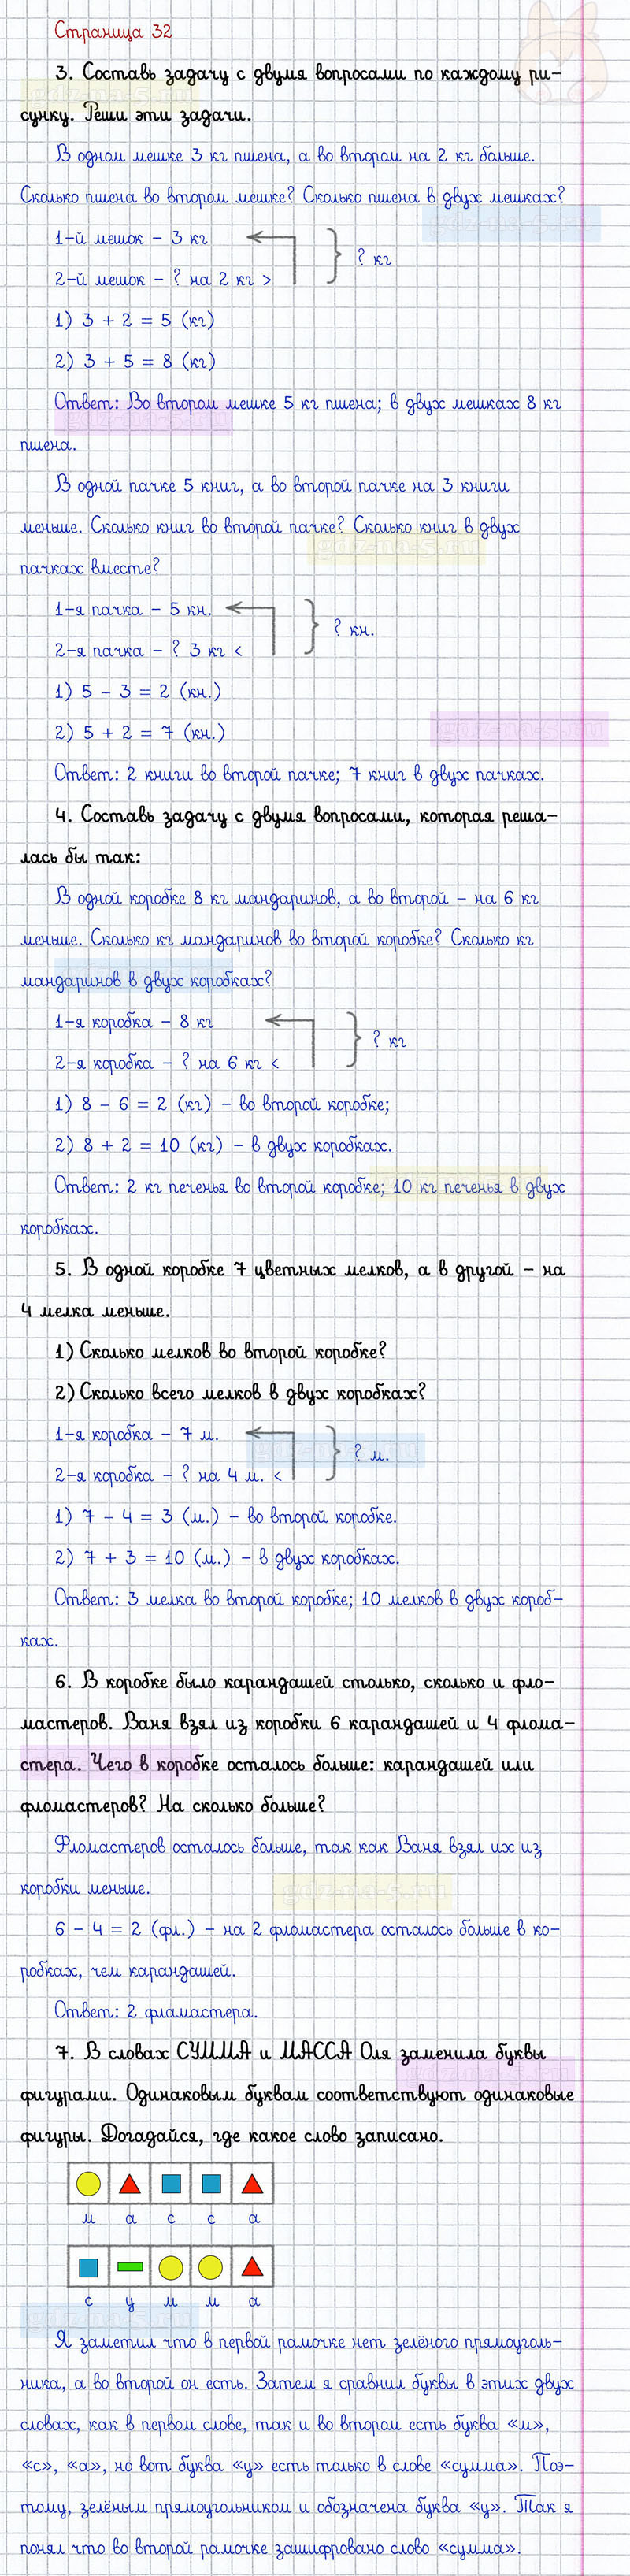 Страница 32
3. Составь задачу с двумя вопросами по каждому ри-
сунку. Реши эти задачи.
В одном мешке 3 кг пшена, а во втором на 2 кг больше.
Сколько пшена во втором мешке? Сколько пшена в двух мешках?
1-й мешок – 3 кг
? кг
2-й мешок – ? на 2 кг >
1) 3 + 2 = 5 (кг)
2) 3 + 5 = 8 (кг)
Ответ: Во втором мешке 5 кг пшена; в двух мешках 8 кг
пшена.
В одной пачке 5 книг, а во второй пачке на 3 книги
меньше. Сколько книг во второй пачке? Сколько книг в двух
пачках вместе?
1-я пачка – 5 кн.
? кн.
2-я пачка – ? 3 кг <
1) 5 – 3 = 2 (кн.)
2) 5 + 2 = 7 (кн.)
Ответ: 2 книги во второй пачке; 7 книг в двух пачках.
4. Составь задачу с двумя вопросами, которая реша-
лась бы так:
В одной коробке 8 кг мандаринов, а во второй – на 6 кг
меньше. Сколько кг мандаринов во второй коробке? Сколько кг
мандаринов в двух коробках?
1-я коробка – 8 кг
? кг
2-я коробка – ? на 6 кг <
1) 8 – 6 = 2 (кг) – во второй коробке;
2) 8 + 2 = 10 (кг) – в двух коробках.
Ответ: 2 кг печенья во второй коробке; 10 кг печенья в двух
коробках.
5. В одной коробке 7 цветных мелков, а в другой – на
4 мелка меньше.
1) Сколько мелков во второй коробке?
2) Сколько всего мелков в двух коробках?
1-я коробка – 7 м.
? м.
2-я коробка – ? на 4 м. <
1) 7 – 4 = 3 (м.) – во второй коробке.
2) 7 + 3 = 10 (м.) – в двух коробках.
Ответ: 3 мелка во второй коробке; 10 мелков в двух короб-
ках.
6. В коробке было карандашей столько, сколько и фло-
мастеров. Ваня взял из коробки 6 карандашей и 4 флома-
стера. Чего в коробке осталось больше: карандашей или
фломастеров? На сколько больше?
Фломастеров осталось больше, так как Ваня взял их из
коробки меньше.
6 – 4 = 2 (фл.) – на 2 фломастера осталось больше в ко-
робках, чем карандашей.
Ответ: 2 фламастера.
7. В словах СУММА и МАССА Оля заменила буквы
фигурами. Одинаковым буквам соответствуют одинаковые
фигуры. Догадайся, где какое слово записано.
м а с с а
с у м м а
Я заметил что в первой рамочке нет зелёного прямоуголь-
ника, а во второй он есть. Затем я сравнил буквы в этих двух
словах, как в первом слове, так и во втором есть буква «м»,
«с», «а», но вот буква «у» есть только в слове «сумма». Поэ-
тому, зелёным прямоугольником и обозначена буква «у». Так я
понял что во второй рамочке зашифровано слово «сумма».